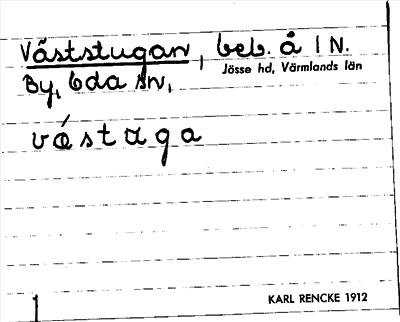 Väststugan, beb. å 1 N.
Jösse hd, Värmlands län
By, Eda sn,
vǽstuga
KARL RENCKE 1912
1